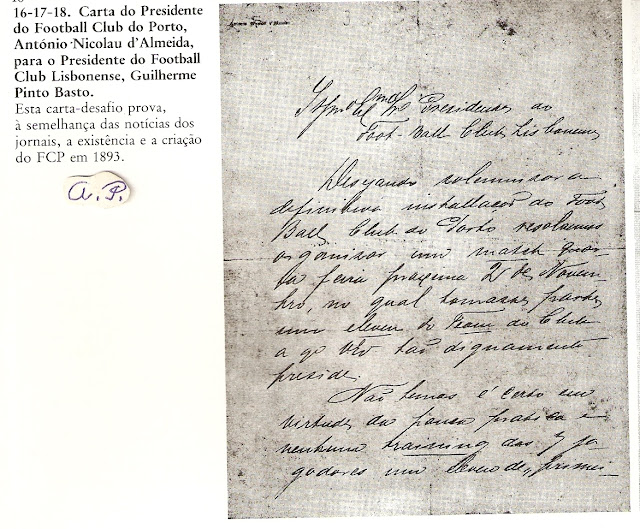 16-17-18. Carta do Presidente
do Football Club do Porto,
António Nicolau d'Almeida,
para o Presidente do Football
Club Lisbonense, Guilherme
Pinto Basto.
Esta carta-desafio prova,
à semelhança das notícias dos
jornais, a existência e a criação
do FCP em 1893.
a. P.
Presidente do
Foot-Ball Club Lisbonense
Desejando solemnisar a
definitiva installação do Foot
Ball Club do Porto resolvemos
organisar um match quar-
ta feira proxima 2 de Novem-
bro, no qual tomasse parte
um eleven do Team do Club
a q. V. tão dignamente
preside.
Não temos é certo em
virtude da pouca pratica e
nenhum training dos jo-
gadores um eleven de „primei-